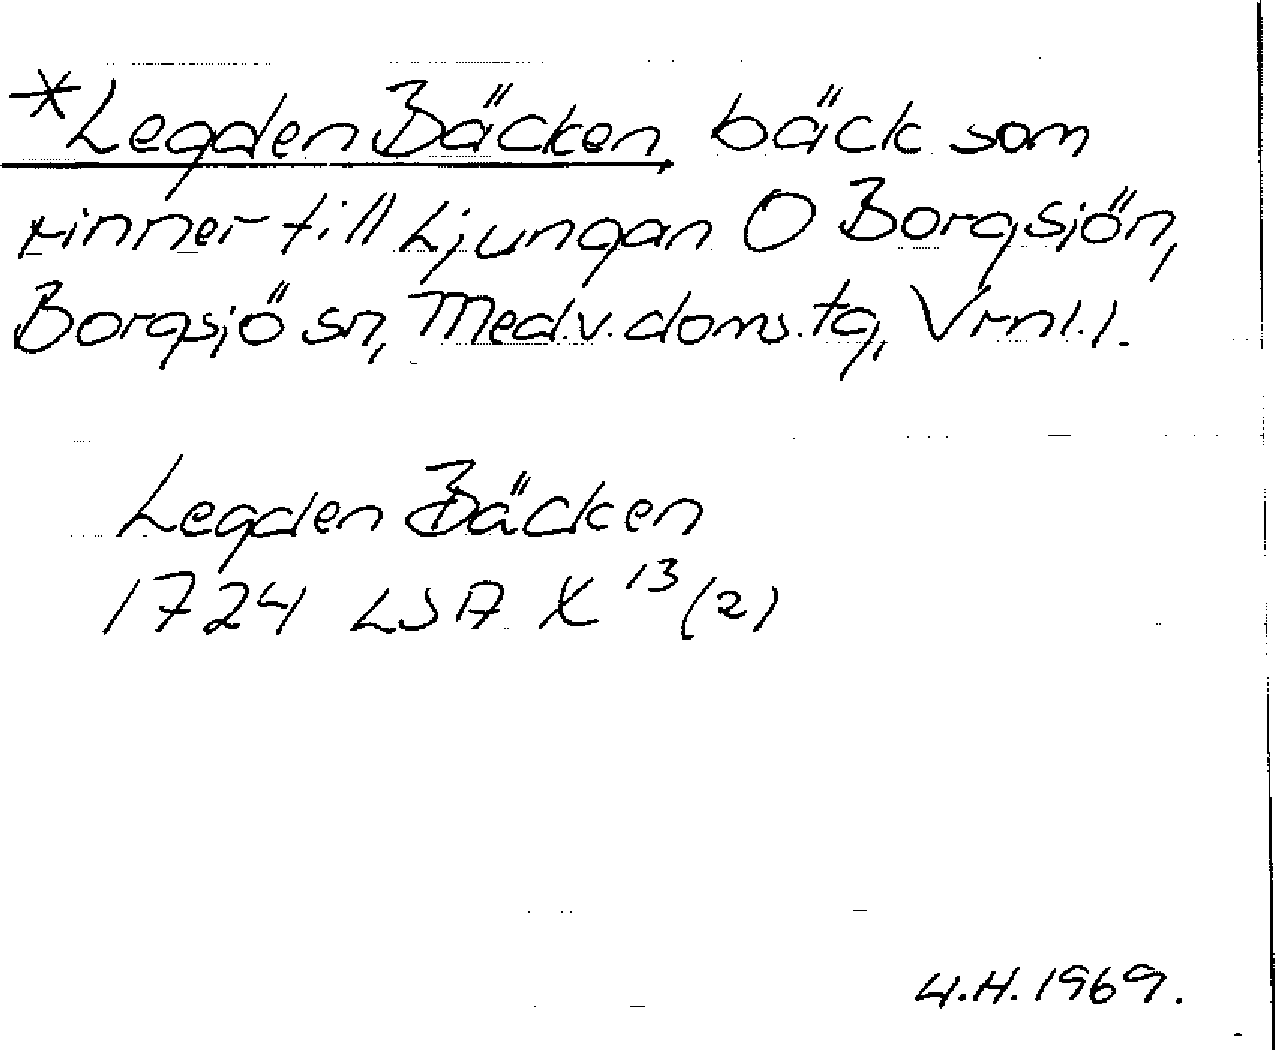 *Legden Bäcken, bäck som
rinner till Ljungan O Borgsjön,
Borgsjö sn, Med.v.doms.tg, Vrnl.l.
Legden Bäcken
1724 LSA X 13 (2)
4.H.1969.